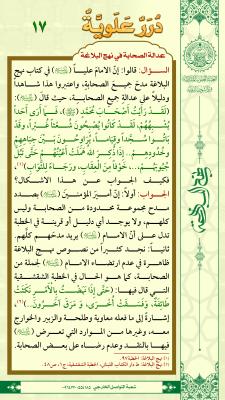 دُرَرٌ عَلَوِيَّةٌ
١٧
عدالة الصحابة في نهج البلاغة
السؤال: قالوا: إنّ الإمام عليّاً (عليه السلام) في كتاب نهج
البلاغة مدح جميعَ الصحابةِ، واعتبروا هذا شاهداً
ودليلاً على عدالةِ جميع الصحابةِ، حيث قال (عليه السلام):
(لَقَدْ رَأَيْتُ أَصْحَابَ مُحَمَّدٍ (ﷺ)، فَمَا أَرَى أَحَداً
يُشْبِهُهُمْ، لَقَدْ كَانُوا يُصْبِحُونَ شُعْثاً غُبْراً، وَقَدْ
بَاتُوا سُجَّداً وَقِيَاماً، يُرَاوِحُونَ بَيْنَ جِبَاهِهِمْ
وَخُدُودِهِمْ... إِذَا ذُكِرَ اللهُ هَمَلَتْ أَعْيُنُهُمْ حَتَّى تَبُلَّ
جُيُوبَهُمْ... خَوْفاً مِنَ الْعِقَابِ، وَرَجَاءً لِلثَّوَابِ)(١)،
فكيف الجواب عن هذا الاشكال؟
الجواب: أولاً: إنّ أميرَ المؤمنين (عليه السلام) بصدد
مدح مجموعة محدودة من الصحابة وليس
كلهم، ولا يوجد أي دليل أو قرينة في الخطبة
تدل على أنّ الإمام (عليه السلام) يريد مدحهم كلّهم.
ثانياً: نجد كثيراً من نصوص نهج البلاغة
ظاهرة في عدم ارتضاء الإمام (عليه السلام) لجملة من
الصحابة، كما هو الحال في الخطبة الشقشقية
التي قال فيها: (حَتَّى إِذَا نَهَضْتُ بِالْأَمْرِ نَكَثَتْ
طَائِفَةٌ، وَفَسَقَتْ أُخْرَى، وَمَرَقَ آخَرُونَ...)(٢)
إشارةً إلى ما فعله معاوية وطلحة والزبير والخوارج
معه، وغيرها من الموارد التي تعرض
فيها بالنقد وعدم رضاء على بعض الصحابة.
(١) نهج البلاغة: الخطبة ٩٧.
شعبة التواصل الخارجي